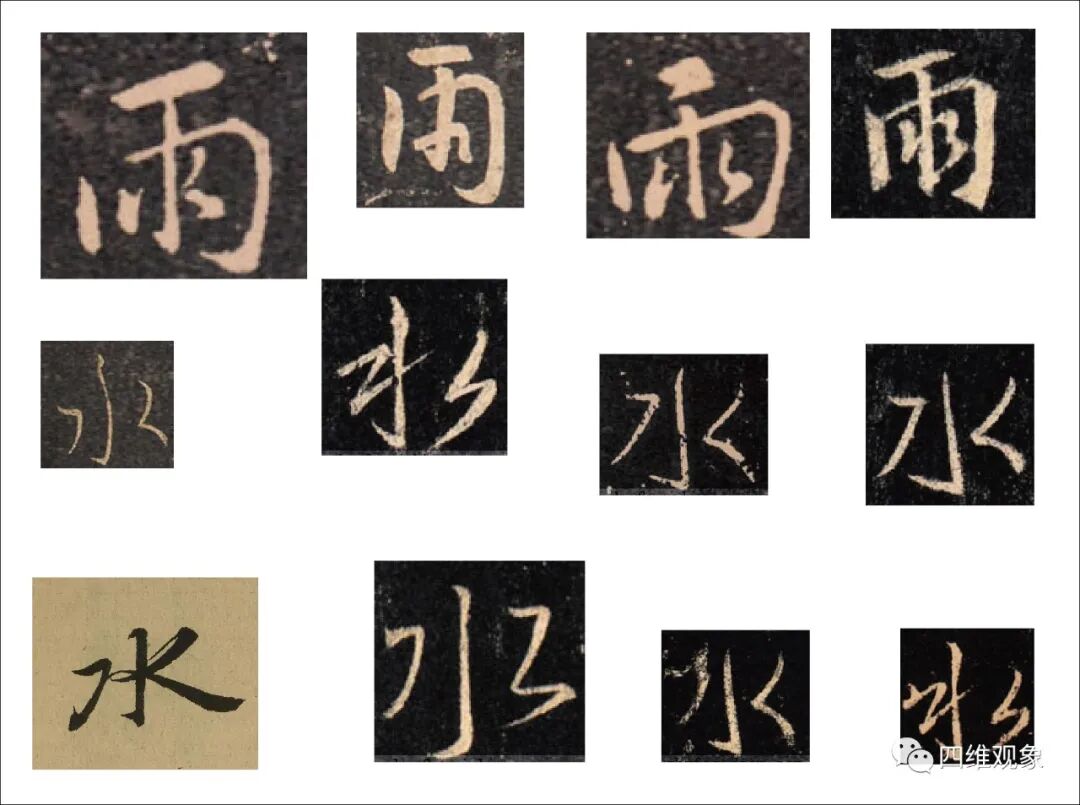 雨 雨 雨 雨
水 水 水 水
水 水 水 水
四维观象